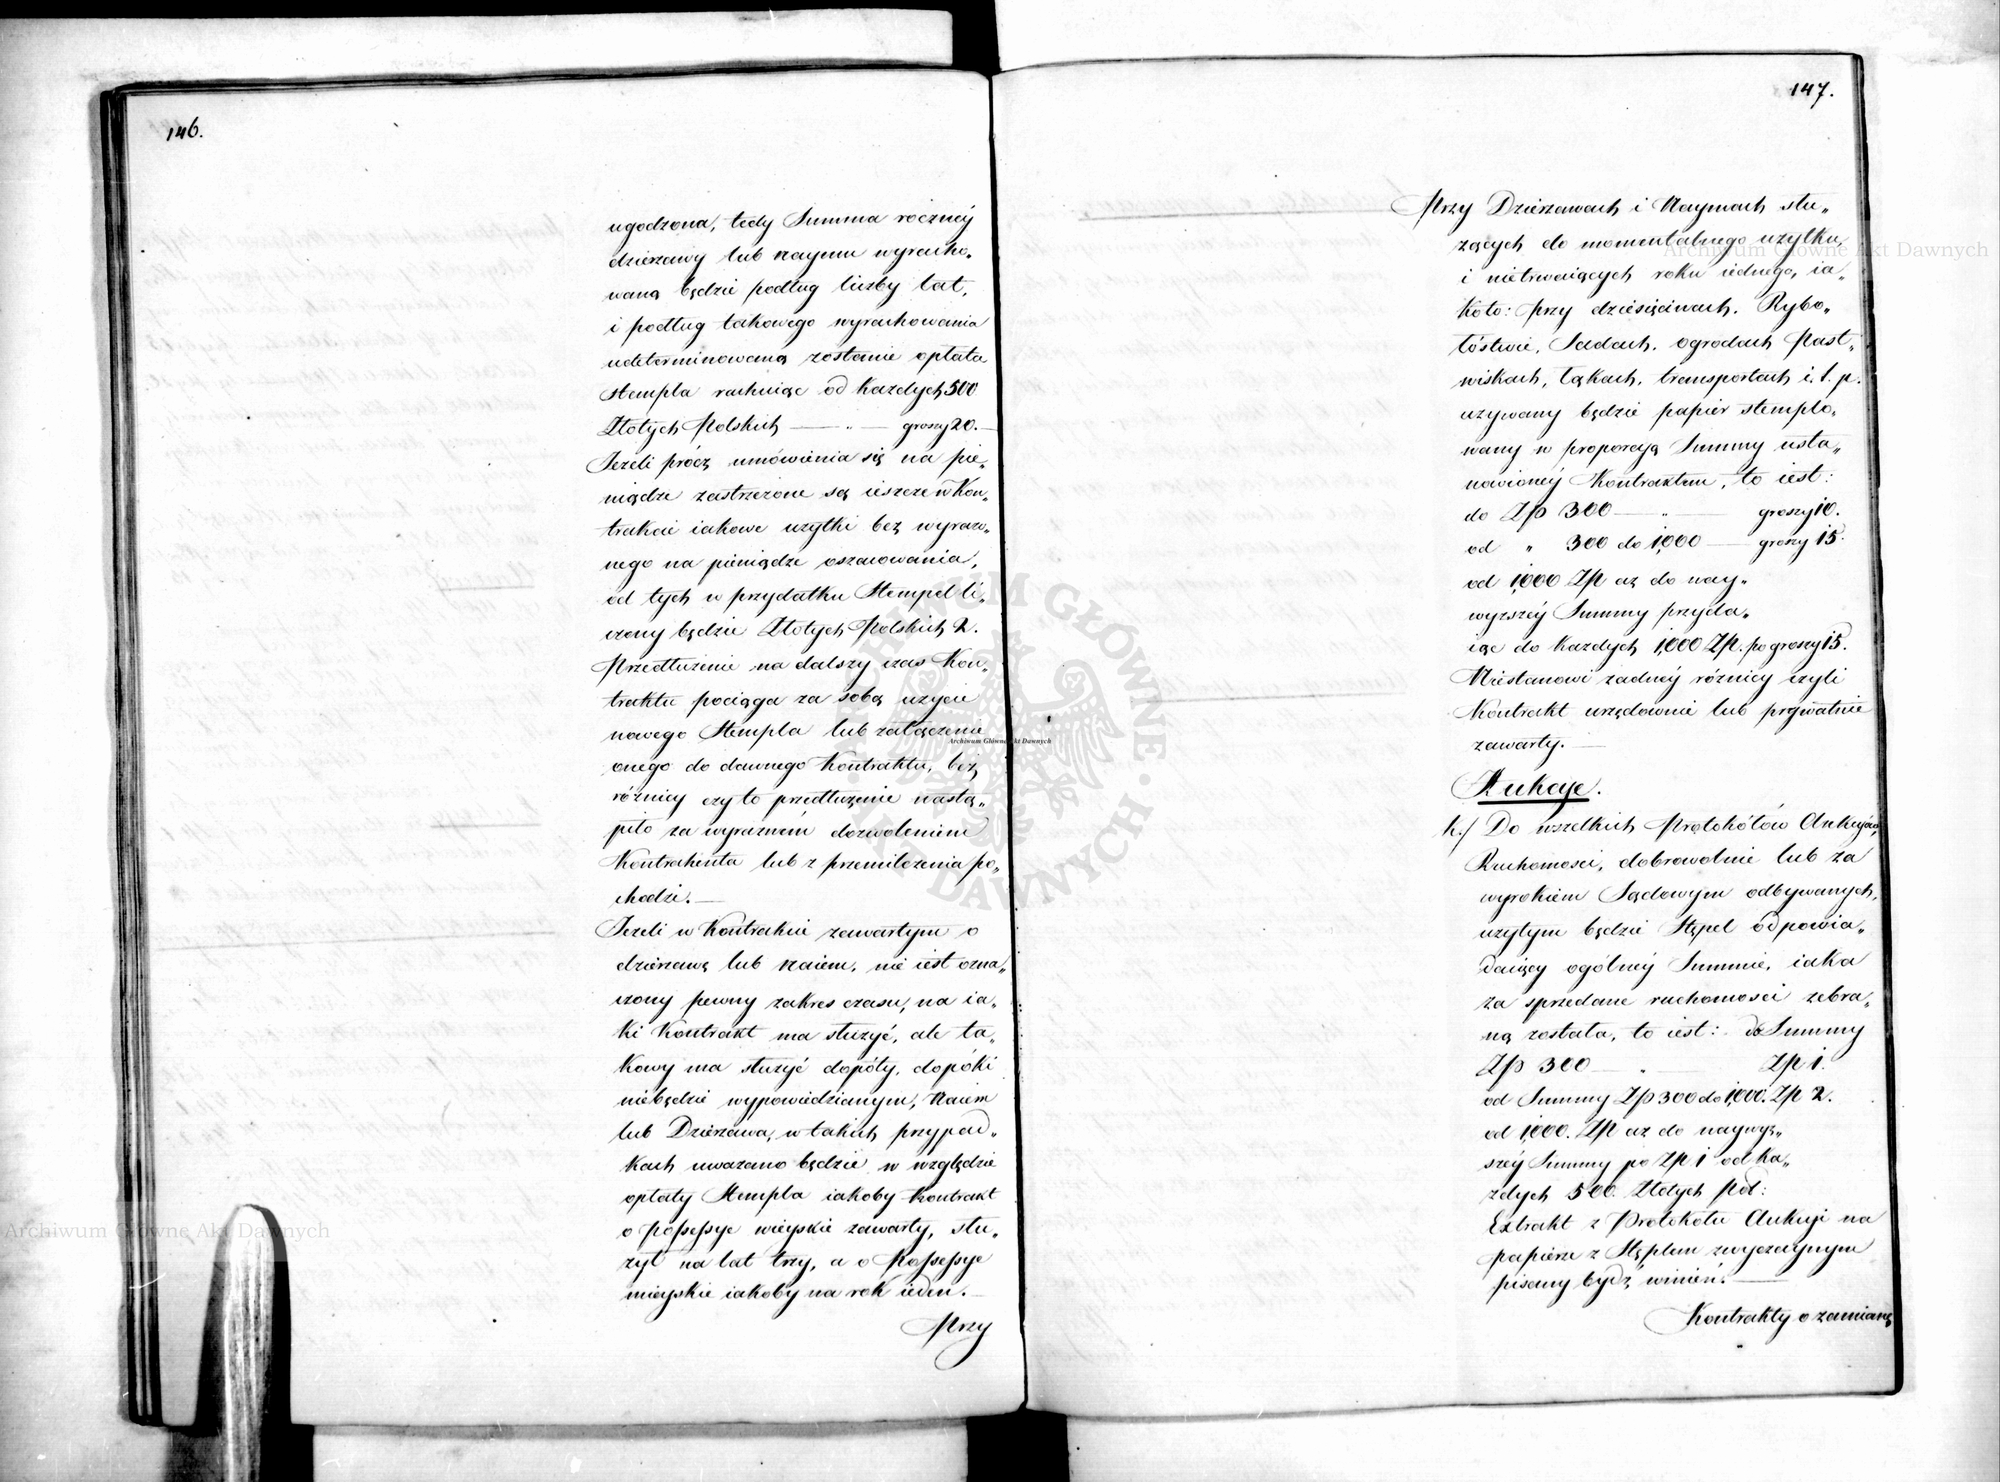 146.
ugodzona, tedy Summa roczney
dzierzawy lub naymu wyracho„
waną będzie podług liczby lat,
i podług takowego wyrachowania
udeterminowaną zostanie opłata
Stempla rachuiąc od każdych 500
Złotych Polskich — „ — groszy 20. —
Jeżeli prócz umówienia się na pie„
niądze zastrzeżone są ieszcze w Kon„
trakcie iakowe użytki bez wyraź„
nego na pieniądze oszacowania,
od tych w przydatku Stempel li„
czony będzie Złotych Polskich 2.
Przedłużenie na dalszy czas Kon„
traktu pociąga za sobą użycie
nowego Stempla lub załączenie
onego do dawnego Kontraktu, bez
różnicy czy to przedłużenie nastą„
piło za wyraźném dozwoleniem
Kontrahenta lub z przemilczenia po„
chodzi. —
Jeżeli w Kontrakcie zawartym o
dzierzawę lub naiem, nie iest ozna„
czony pewny zakres czasu, na ia„
ki Kontrakt ma służyć, ale ta„
kowy ma służyć dopóty, dopóki
niebędzie wypowiedzianym, Naiem
lub Dzierzawa, w takich przypad„
kach uważano będzie w względzie
opłaty Stempla iakoby Kontrakt
o possessye wieyskie zawarty, słu„
żył na lat trzy, a o Possessye
mieyskie iakoby na rok ieden. —
Przy
147.
Przy Dzierzawach i Naymach słu„
żących do momentalnego użytku,
i nietrwaiących roku iednego, ia„
koto: przy dziesięcinach, Rybo„
łóstwie, Sadach, ogrodach Past„
wiskach, łąkach, transportach i. t. p.
używany będzie papier stemplo„
wany w proporcyą Summy usta„
nowioney Kontraktem, to iest:
do Zło 300 — „ — groszy 10.
od „ 300 do 1,000 — groszy 15.
od 1,000 Zł aż do nay„
wyższéy Summy przyda„
iąc do każdych 1,000 Zł. po groszy 15.
Niestanowi żadnéy różnicy czyli
Kontrakt urzędownie lub prywatnie
zawarty. —
Aukcye.
k./ Do wszelkich Protokółów Aukcyów,
Ruchomości, dobrowolnie lub za
wyrokiem Sądowym odbywanych,
użytym będzie Stępel odpowia„
daiący ogólnéy Summie, iaka
za sprzedane ruchomości zebra„
ną została, to iest: do Summy
Złp 300 — „ — Zp 1.
od Summy Złp 300 do 1,000. Zp 2.
od 1,000. Złp aż do naywyż„
széy Summy po Zp 1 od ka„
żdych 500 Złotych Pol:
Extrakt z Protokołu Aukcyi na
papierze z Stęplem zwyczaynym
pisany bydź winien. —
Kontrakty o zamianę
Archiwum Główne Akt Dawnych
Archiwum Główne Akt Dawnych
Archiwum Główne Akt Dawnych
ARCHIWUM GŁÓWNE · AKT DAWNYCH ·